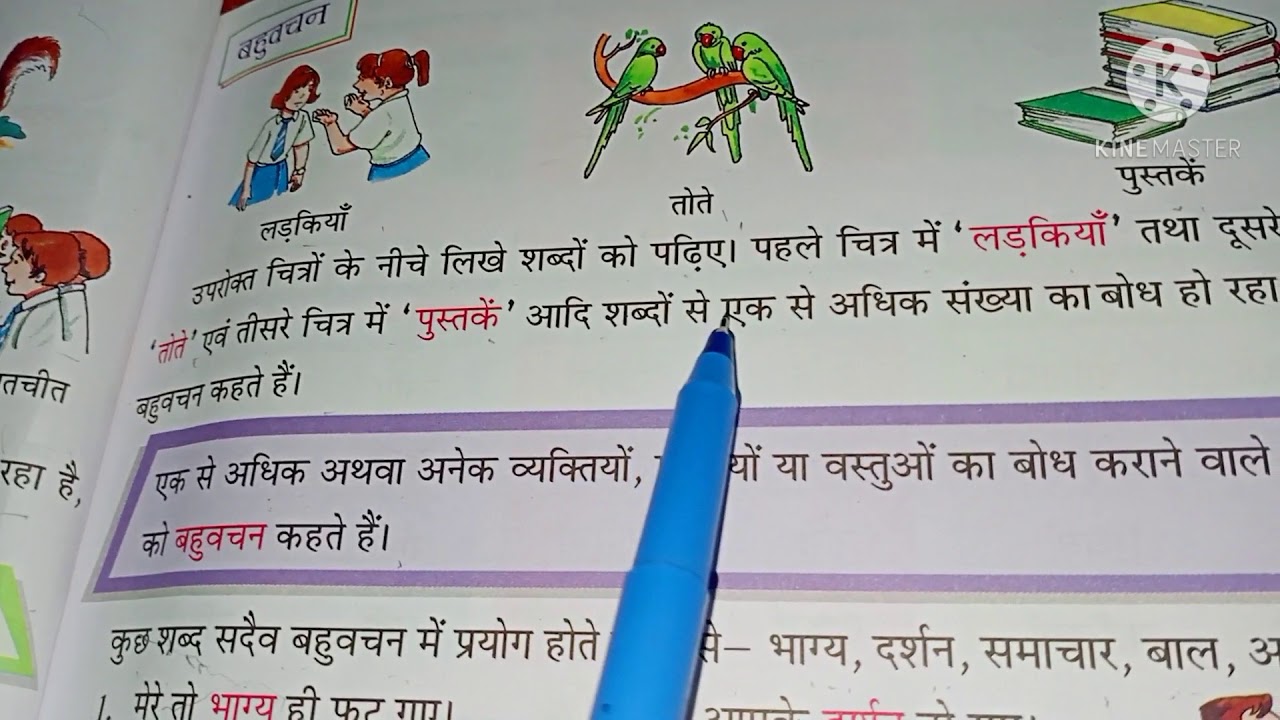 बहुवचन
KINEMASTER
पुस्तकें
तोते
लड़कियाँ
उपरोक्त चित्रों के नीचे लिखे शब्दों को पढ़िए। पहले चित्र में 'लड़कियाँ' तथा दूसरे
'तोते' एवं तीसरे चित्र में 'पुस्तकें' आदि शब्दों से एक से अधिक संख्या का बोध हो रहा
बहुवचन कहते हैं।
तचीत
एक से अधिक अथवा अनेक व्यक्तियों, यों या वस्तुओं का बोध कराने वाले
रहा है,
को बहुवचन कहते हैं।
कुछ शब्द सदैव बहुवचन में प्रयोग होते से– भाग्य, दर्शन, समाचार, बाल,
1. मेरे तो भाग्य ही फूट गए।